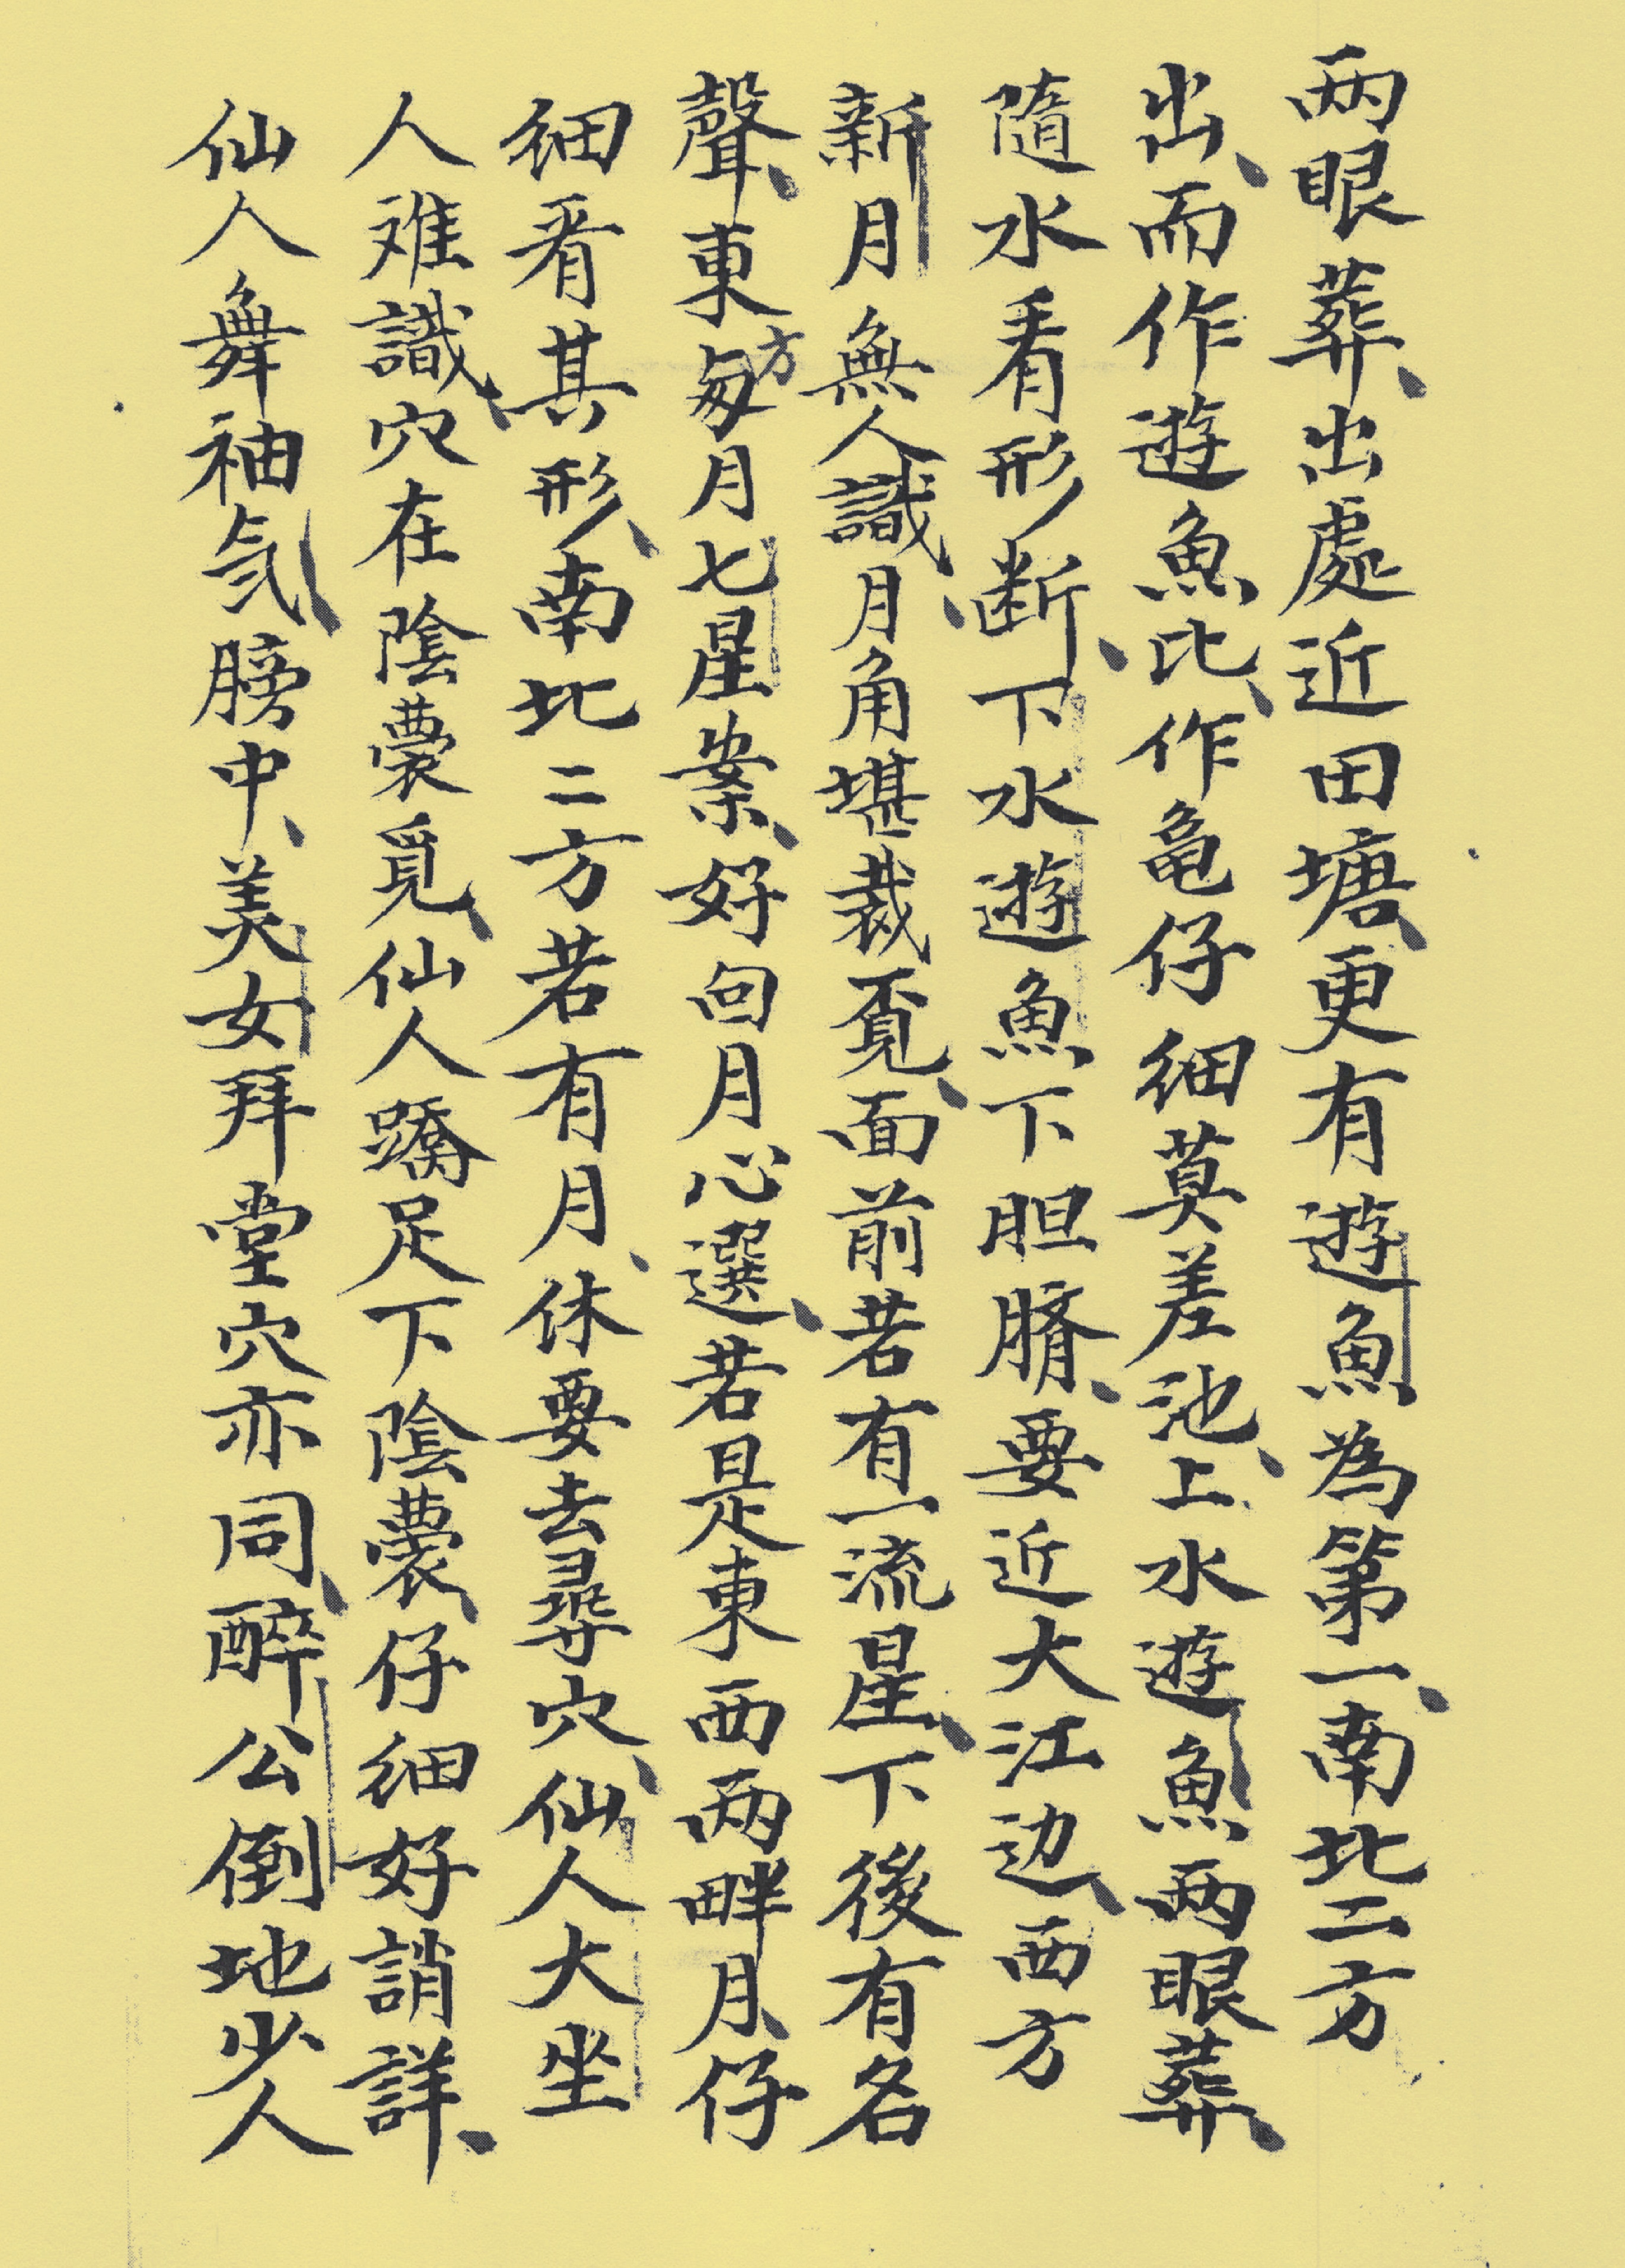 两眼葬、出處近田塘、更有遊魚為第一、南北二方
出、而作遊魚比、作亀仔細莫差池、上水遊魚两眼葬、
隨水看形断、下水遊魚下胆臍、要近大江边、西方
新月無人識、月角堪裁覔、面前若有一流星、下後有名
聲、東方匇月七星案、好向月心選、若是東西两畔月、仔
细看其形、南北二方若有月、休要去尋穴、仙人大坐
人难識、穴在陰囊覓、仙人蹻足下陰囊、仔细好誚詳、
仙人舞袖氣膀中、美女拜堂穴亦同、醉公倒地少人